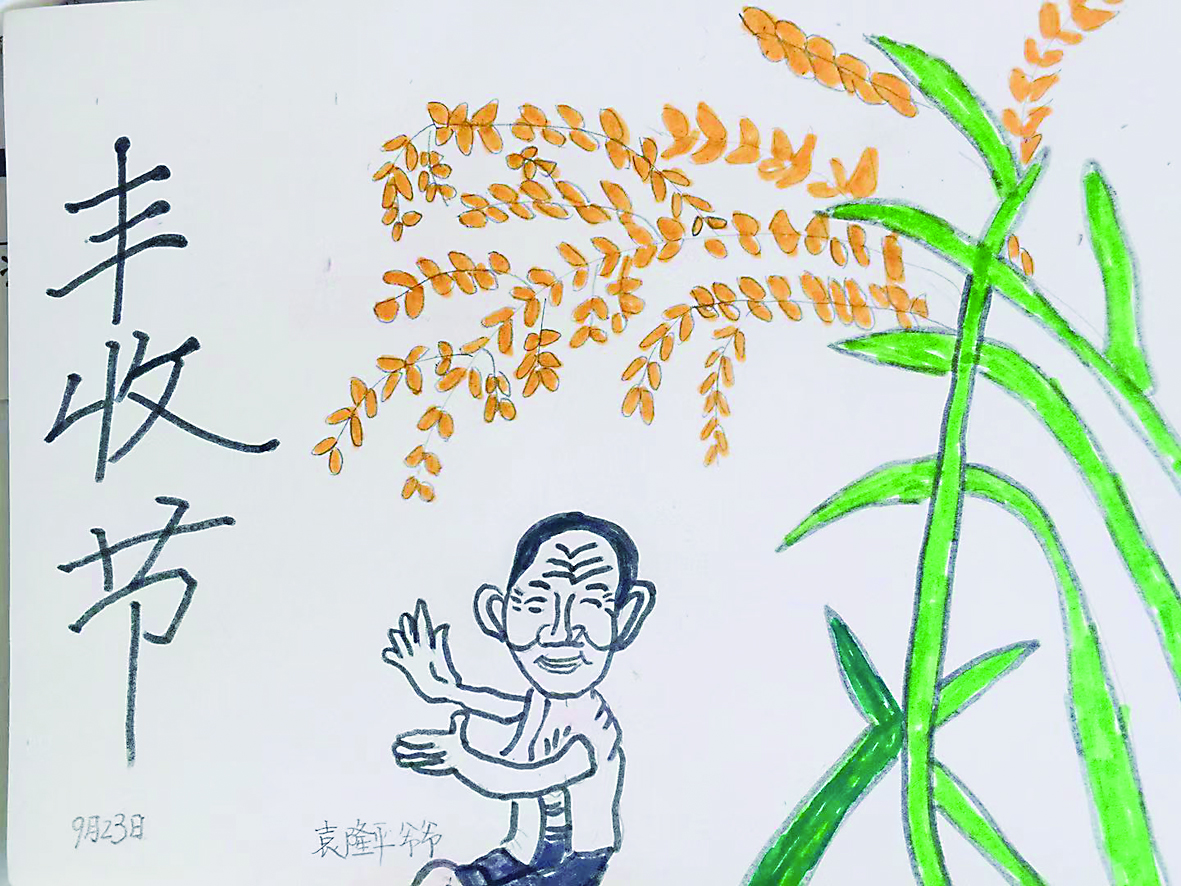 丰收节
9月23日
袁隆平爷爷